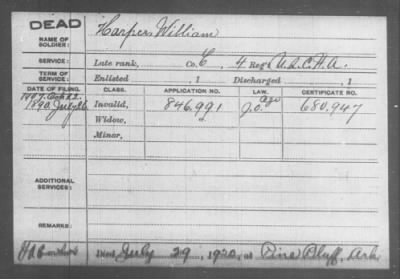 DEAD
NAME OF SOLDIER: Harpers William
SERVICE: Late rank, Co. C, 4 Reg't U.S.C.H.A.
TERM OF SERVICE: Enlisted , 1 Discharged , 1
DATE OF FILING. CLASS. APPLICATION NO. LAW. CERTIFICATE NO.
1890, July Invalid, 846.991 J.O. 680,947
Widow,
Minor,
ADDITIONAL SERVICES:
REMARKS:
Died July 29, 1920, at Pine Bluff, Ark